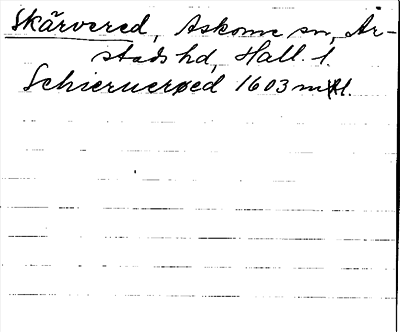 Skärvered, Askome sn, År-
stads hd, Hall. l.
Schieruerøed 1603 mtl.